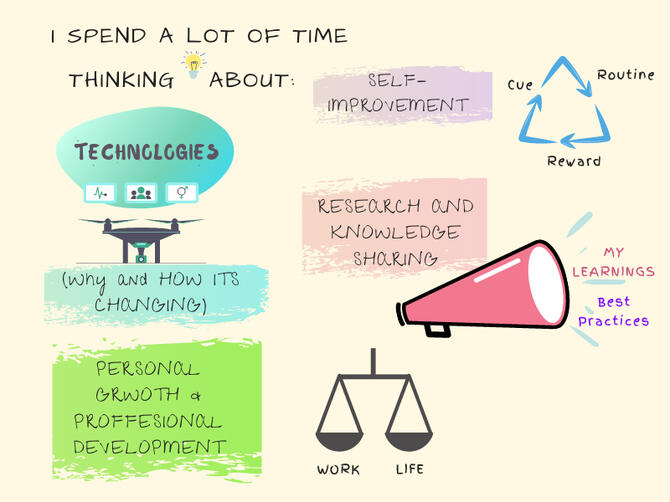 I SPEND A LOT OF TIME
THINKING ABOUT:
TECHNOLOGIES
(Why and HOW ITS
CHANGING)
PERSONAL
GRWOTH &
PROFFESIONAL
DEVELOPMENT
SELF-
IMPROVEMENT
Cue
Routine
Reward
RESEARCH AND
KNOWLEDGE
SHARING
MY
LEARNINGS
Best
Practices
WORK
LIFE